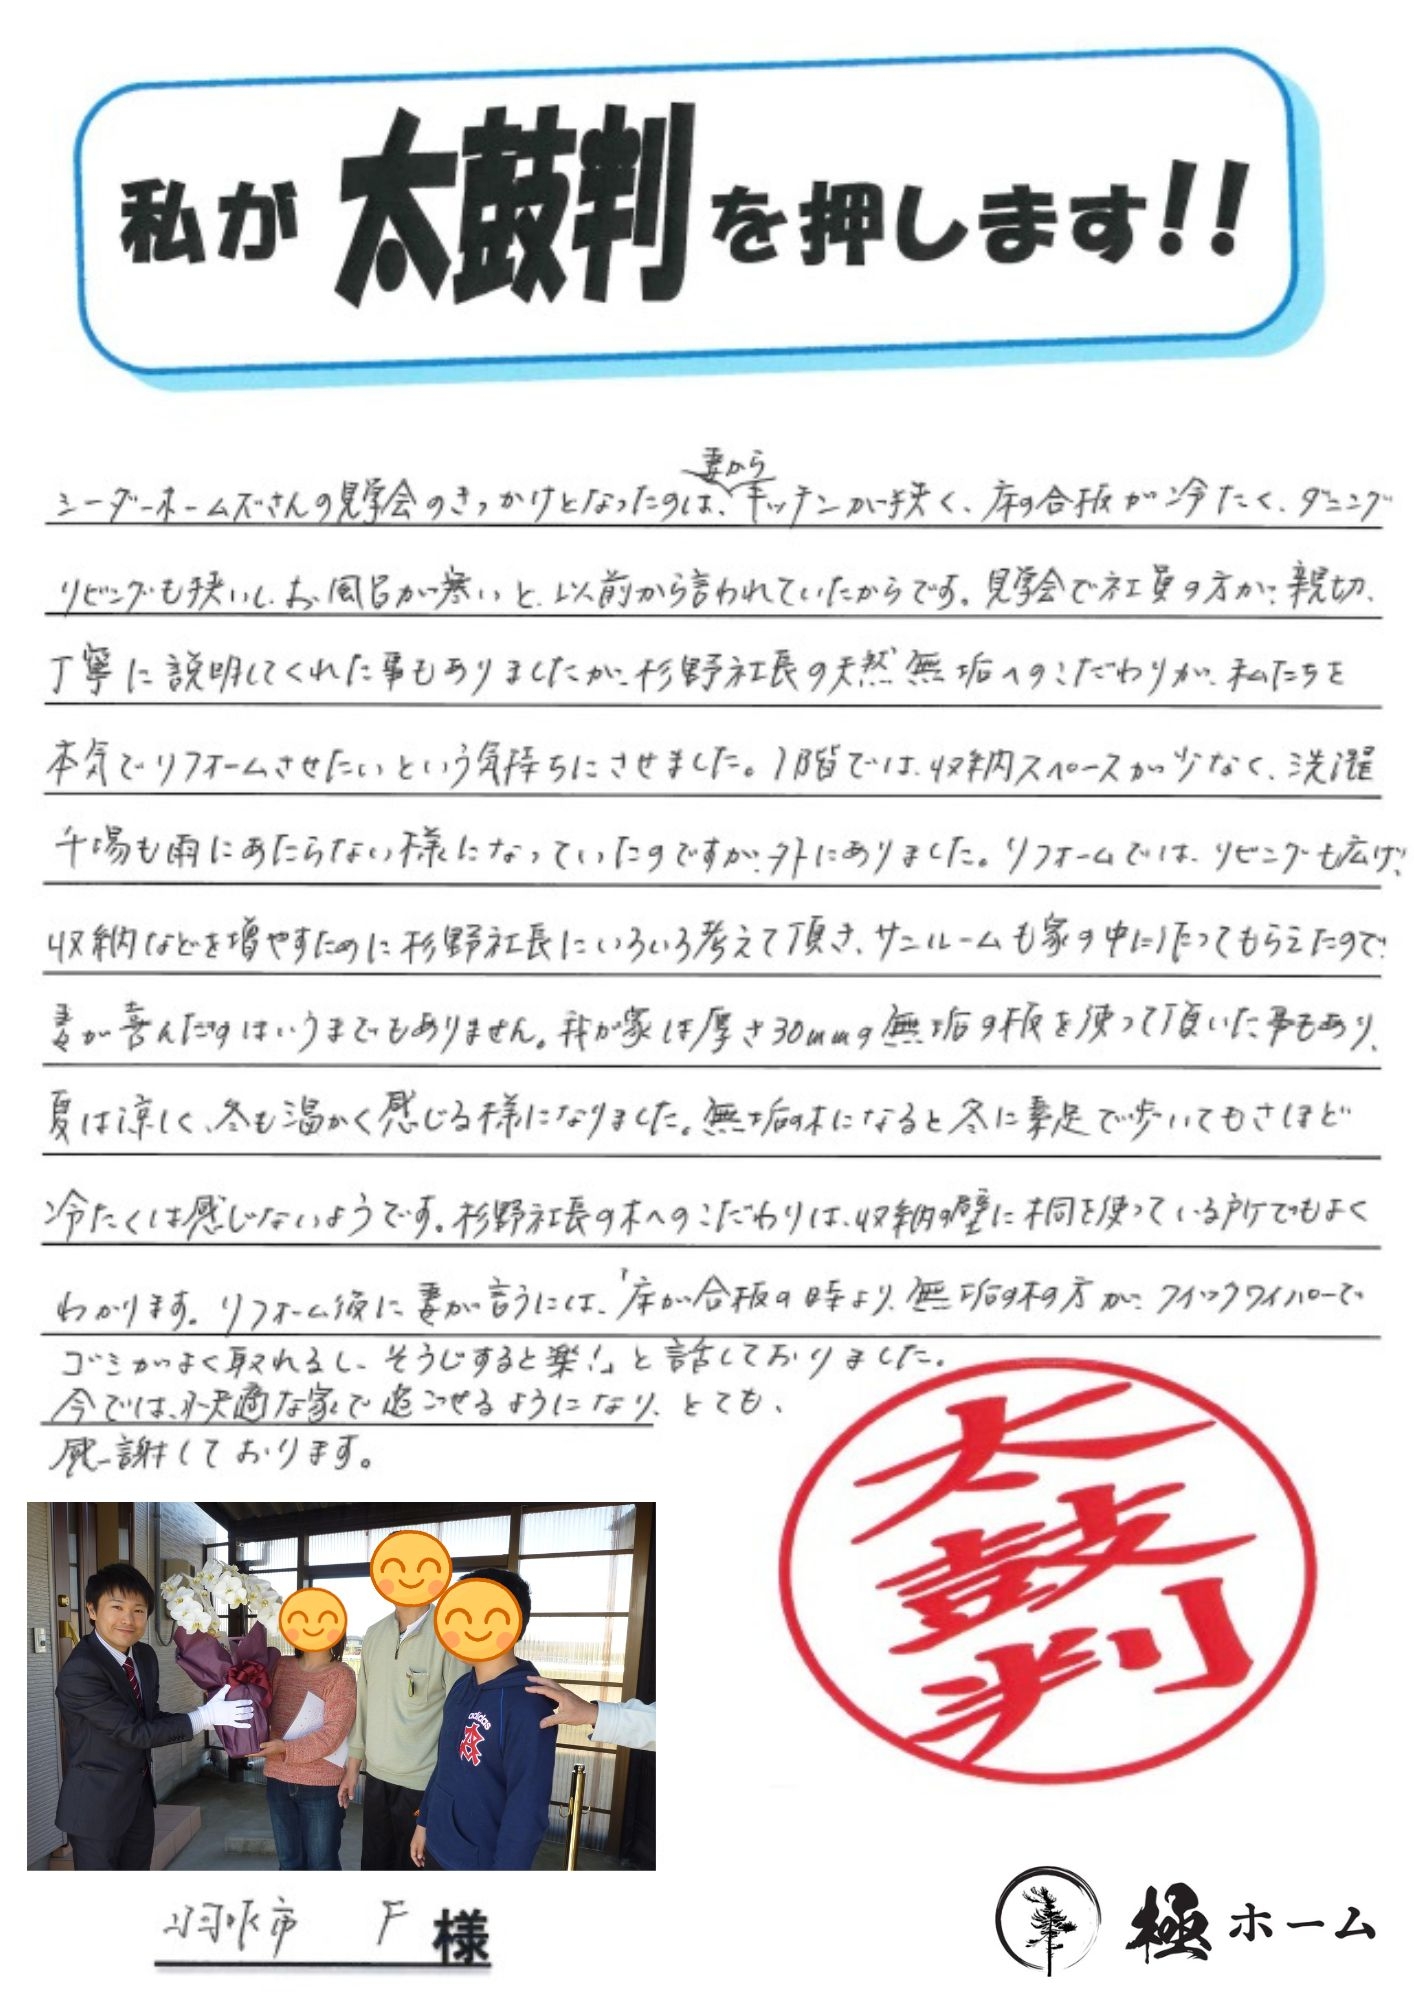 私が太鼓判を押します!!
妻から
シーダーホームズさんの見学会のきっかけとなったのは、キッチンが狭く、床の合板が冷たく、ダイニング
リビングも狭いし、お風呂が寒いと、以前から言われていたからです。見学会で社員の方が、親切、
丁寧に説明してくれた事もありましたが、杉野社長の天然無垢へのこだわりが、私たちを
本気でリフォームさせたいという気持ちにさせました。1階では、収納スペースが少なく、洗濯
干場も雨にあたらない様になっていたのですが、外にありました。リフォームでは、リビングも広げ、
収納などを増やすために杉野社長にいろいろ考えて頂き、サンルームも家の中に作ってもらえたので、
妻が喜んだのはいうまでもありません。我が家は厚さ30mmの無垢の板を使って頂いた事もあり、
夏は涼しく、冬も温かく感じる様になりました。無垢の木になると冬に素足で歩いてもさほど
冷たくは感じないようです。杉野社長の木へのこだわりは、収納の壁に桐を使っている所でもよく
わかります。リフォーム後に妻が言うには、「床が合板の時より、無垢の木の方が、クイックワイパーで
ゴミがよく取れるし、そうじすると楽!」と話しておりました。
今では、快適な家で過ごせるようになり、とても、
感謝しております。
太鼓判
adidas
羽咋市 F様
極ホーム